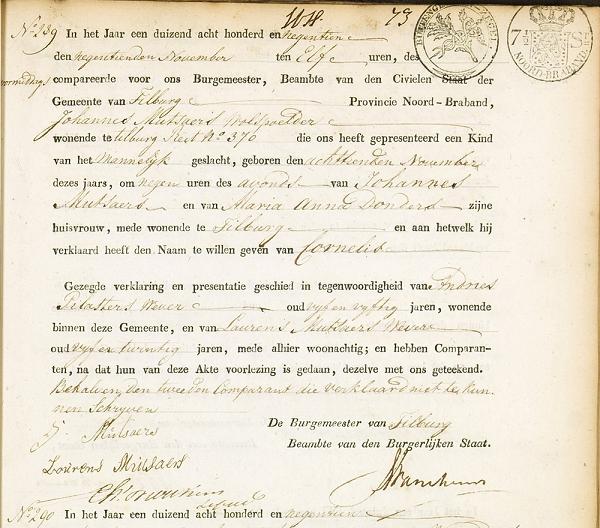 No 239 In het Jaar een duizend acht honderd en negentien
den negentienden November ten Elf uren, des
voormiddags compareerde voor ons Burgemeester, Beambte van den Civielen Staat der
Gemeente van Tilburg Provincie Noord-Braband,
Johannes Mutsaers Wolspoelder
wonende te tilburg Sect No 370 die ons heeft gepresenteerd een Kind
van het Mannelyk geslacht, geboren den achttienden November
dezes jaars, om negen uren des avonds van Johannes
Mutsaers en van Maria Anna Donders zijne
huisvrouw, mede wonende te Tilburg en aan hetwelk hij
verklaard heeft den Naam te willen geven van Cornelis
Gezegde verklaring en presentatie geschied in tegenwoordigheid van Andries
Wever oud vyf en vyftig jaren, wonende
binnen deze Gemeente, en van Laurens Mutsaers Wever
oud vyf en twintig jaren, mede alhier woonachtig; en hebben Comparan-
ten, na dat hun van deze Akte voorlezing is gedaan, dezelve met ons geteekend.
Behalven den tweeden Comparant die verklaard niet te kun-
nen Schryven
J Mutsaers
De Burgemeester van Tilburg
Beambte van den Burgerlijken Staat.
Lourens Mutsaers
No 290 In het Jaar een duizend acht honderd en negentien